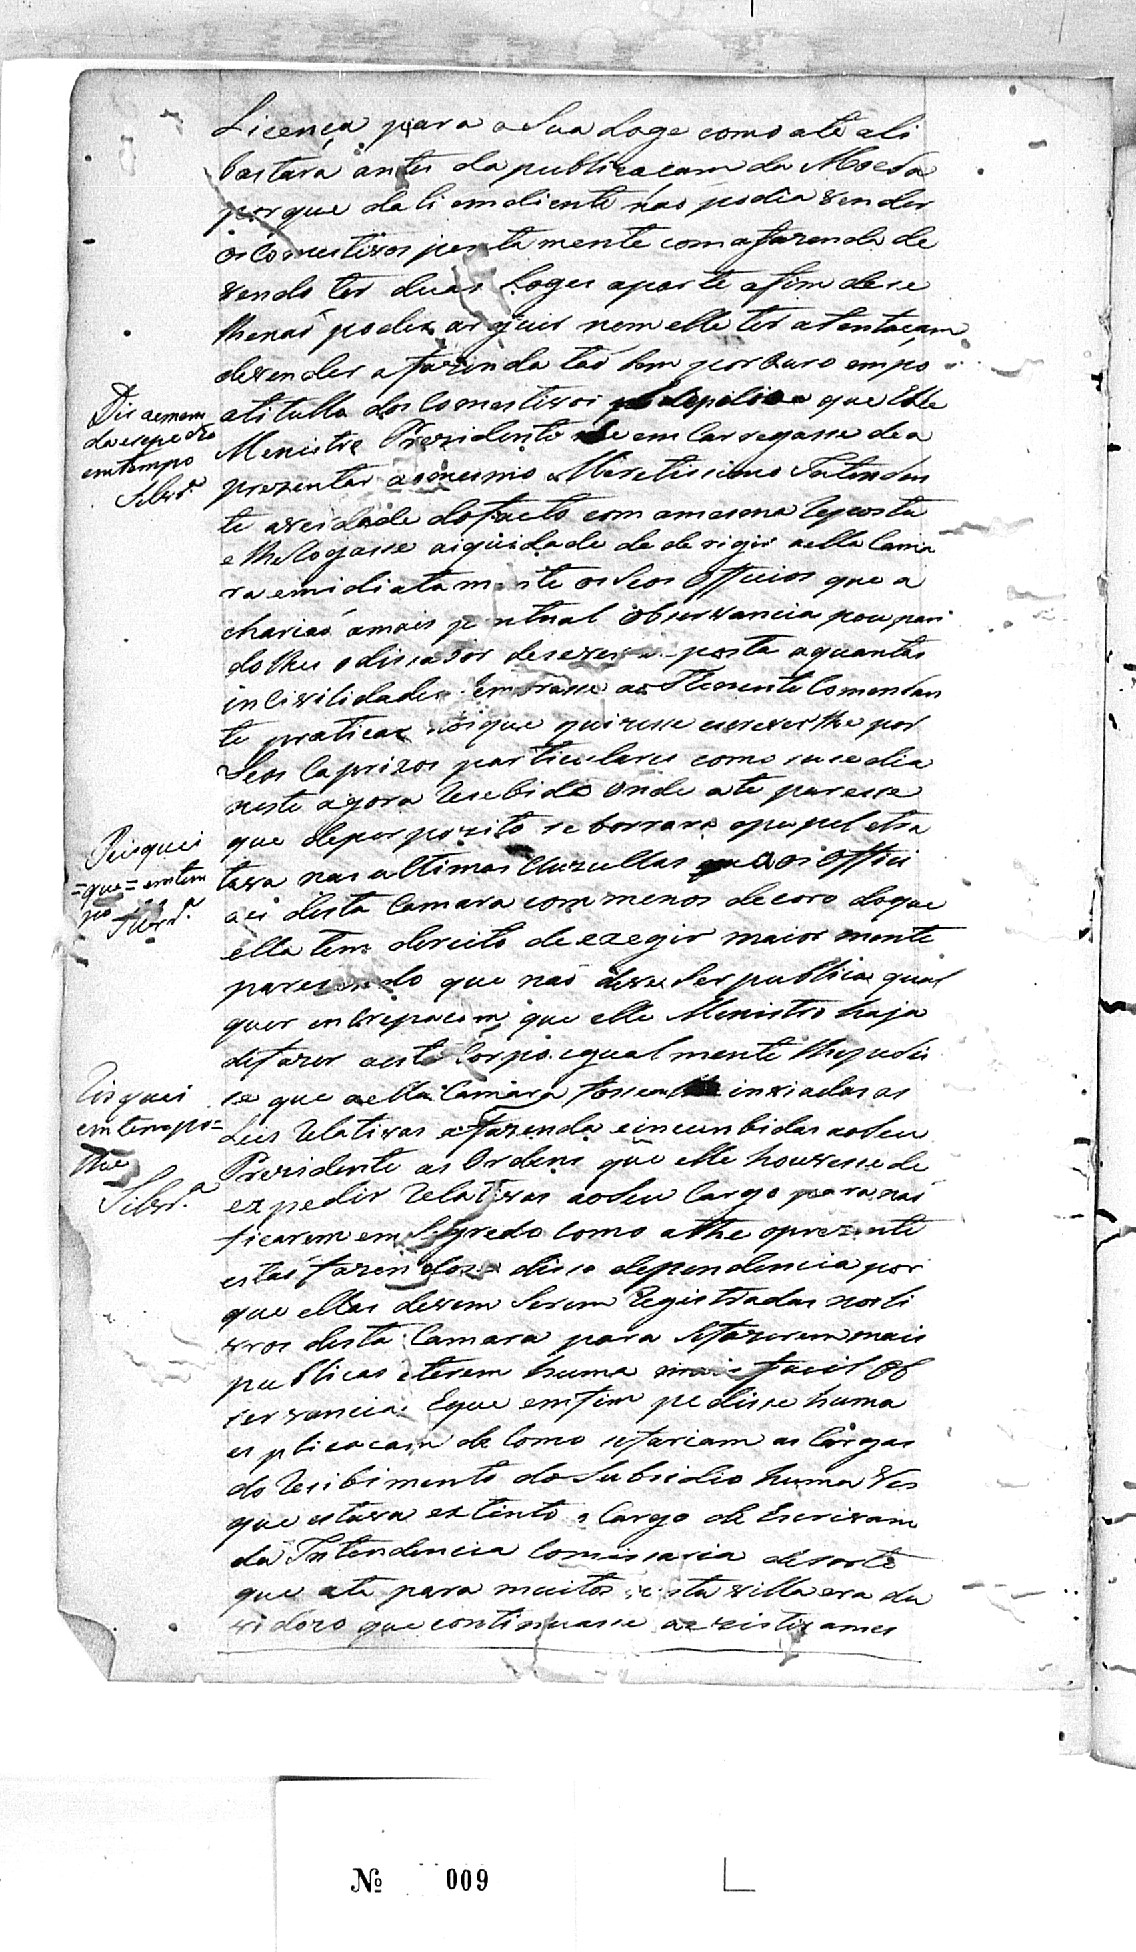 Licença para a Sua Loge como ate ali
bastara antes da publicacam da Moeda
porque dali emdiente não podia vender
os Comestivos juntamente com a fazenda de
vendo ter duas Loges aparte afim dese
lhenaõ poder arguir nem elle ter atentaçam
devender a fazenda taõ bem por ouro empo
atitullo dos Comestivos que Elle
Menistro Prezidente se emcarregasse dea
prezentar aomesmo Meretissimo Intenden
te averdade dofacto com amesma Reposta
e lheRogasse aiguidade de derigir aella Cama
ra emidiatamente os Seos Officios que a
chariaõ amais pontual observancia poupan
dolhes odissabor desever posta aquantas
incivilidades lembrasse ao Thenente Comendan
te praticar eque quizesse escreverlhe por
Seos Caprixos particulares como susedia
neste agora Recebido onde ate paresse
que deporpozito se borrara opapel etra
tava nas ultimas Clauzullas aos Offici
aes desta Camara com menos decoro doque
ella tem dereito de exegir maior mente
paresendo que naõ deve Ser publica qual
quer increpacam que elle Menistro haja
defazer aeste Corpo. egualmente lhepedis
se que aella Camara fossem inviadas as
Leis Relativas afazenda eincunbidas aoSeu
Prezidente as Ordens que elle houvesse de
expedir Relativas aoSeu Cargo para naõ
ficarem em Segredo como athe oprezente
estaõ fazendose disso dependencia por
que ellas devem Serem Registradas nos li
vros desta Camara para Sefazerem mais
publicas eterem huma mais facil Ob
servancia. Eque emfim pedisse huma
explicacam de Como sefariam as Cargas
do Recibimento do Subsidio huma Ves
que estava extinto o Cargo de Escrivam
da Intendencia Comissaria desorte
que ate para muitos desta villa era du
vidozo que continuasse aexistir ames
Dis aemen
da
emtempo
Silvr.ª
Risquei
=que= emtem
po
Silvr.ª
Risquei
emtempo=
lhe
Silvr.ª
Nº 009